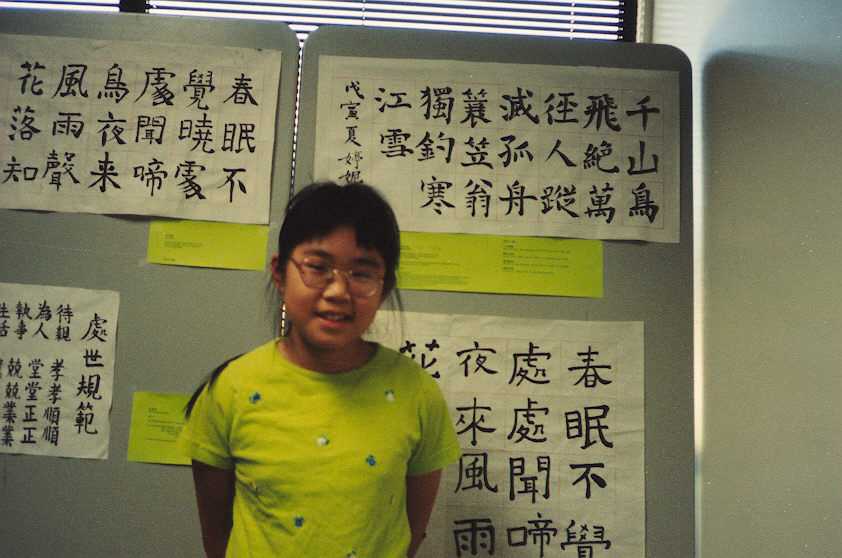 春眠不
覺曉處
處聞啼
鳥夜来
風雨聲
花落知
千山鳥
飛絶萬
徑人蹤
滅孤舟
蓑笠翁
獨釣寒
江雪
戊寅夏婷妮
處世規範
待親 孝孝順順
為人 堂堂正正
執事 兢兢業業
生活
春眠不覺
處處聞啼
夜來風雨
花